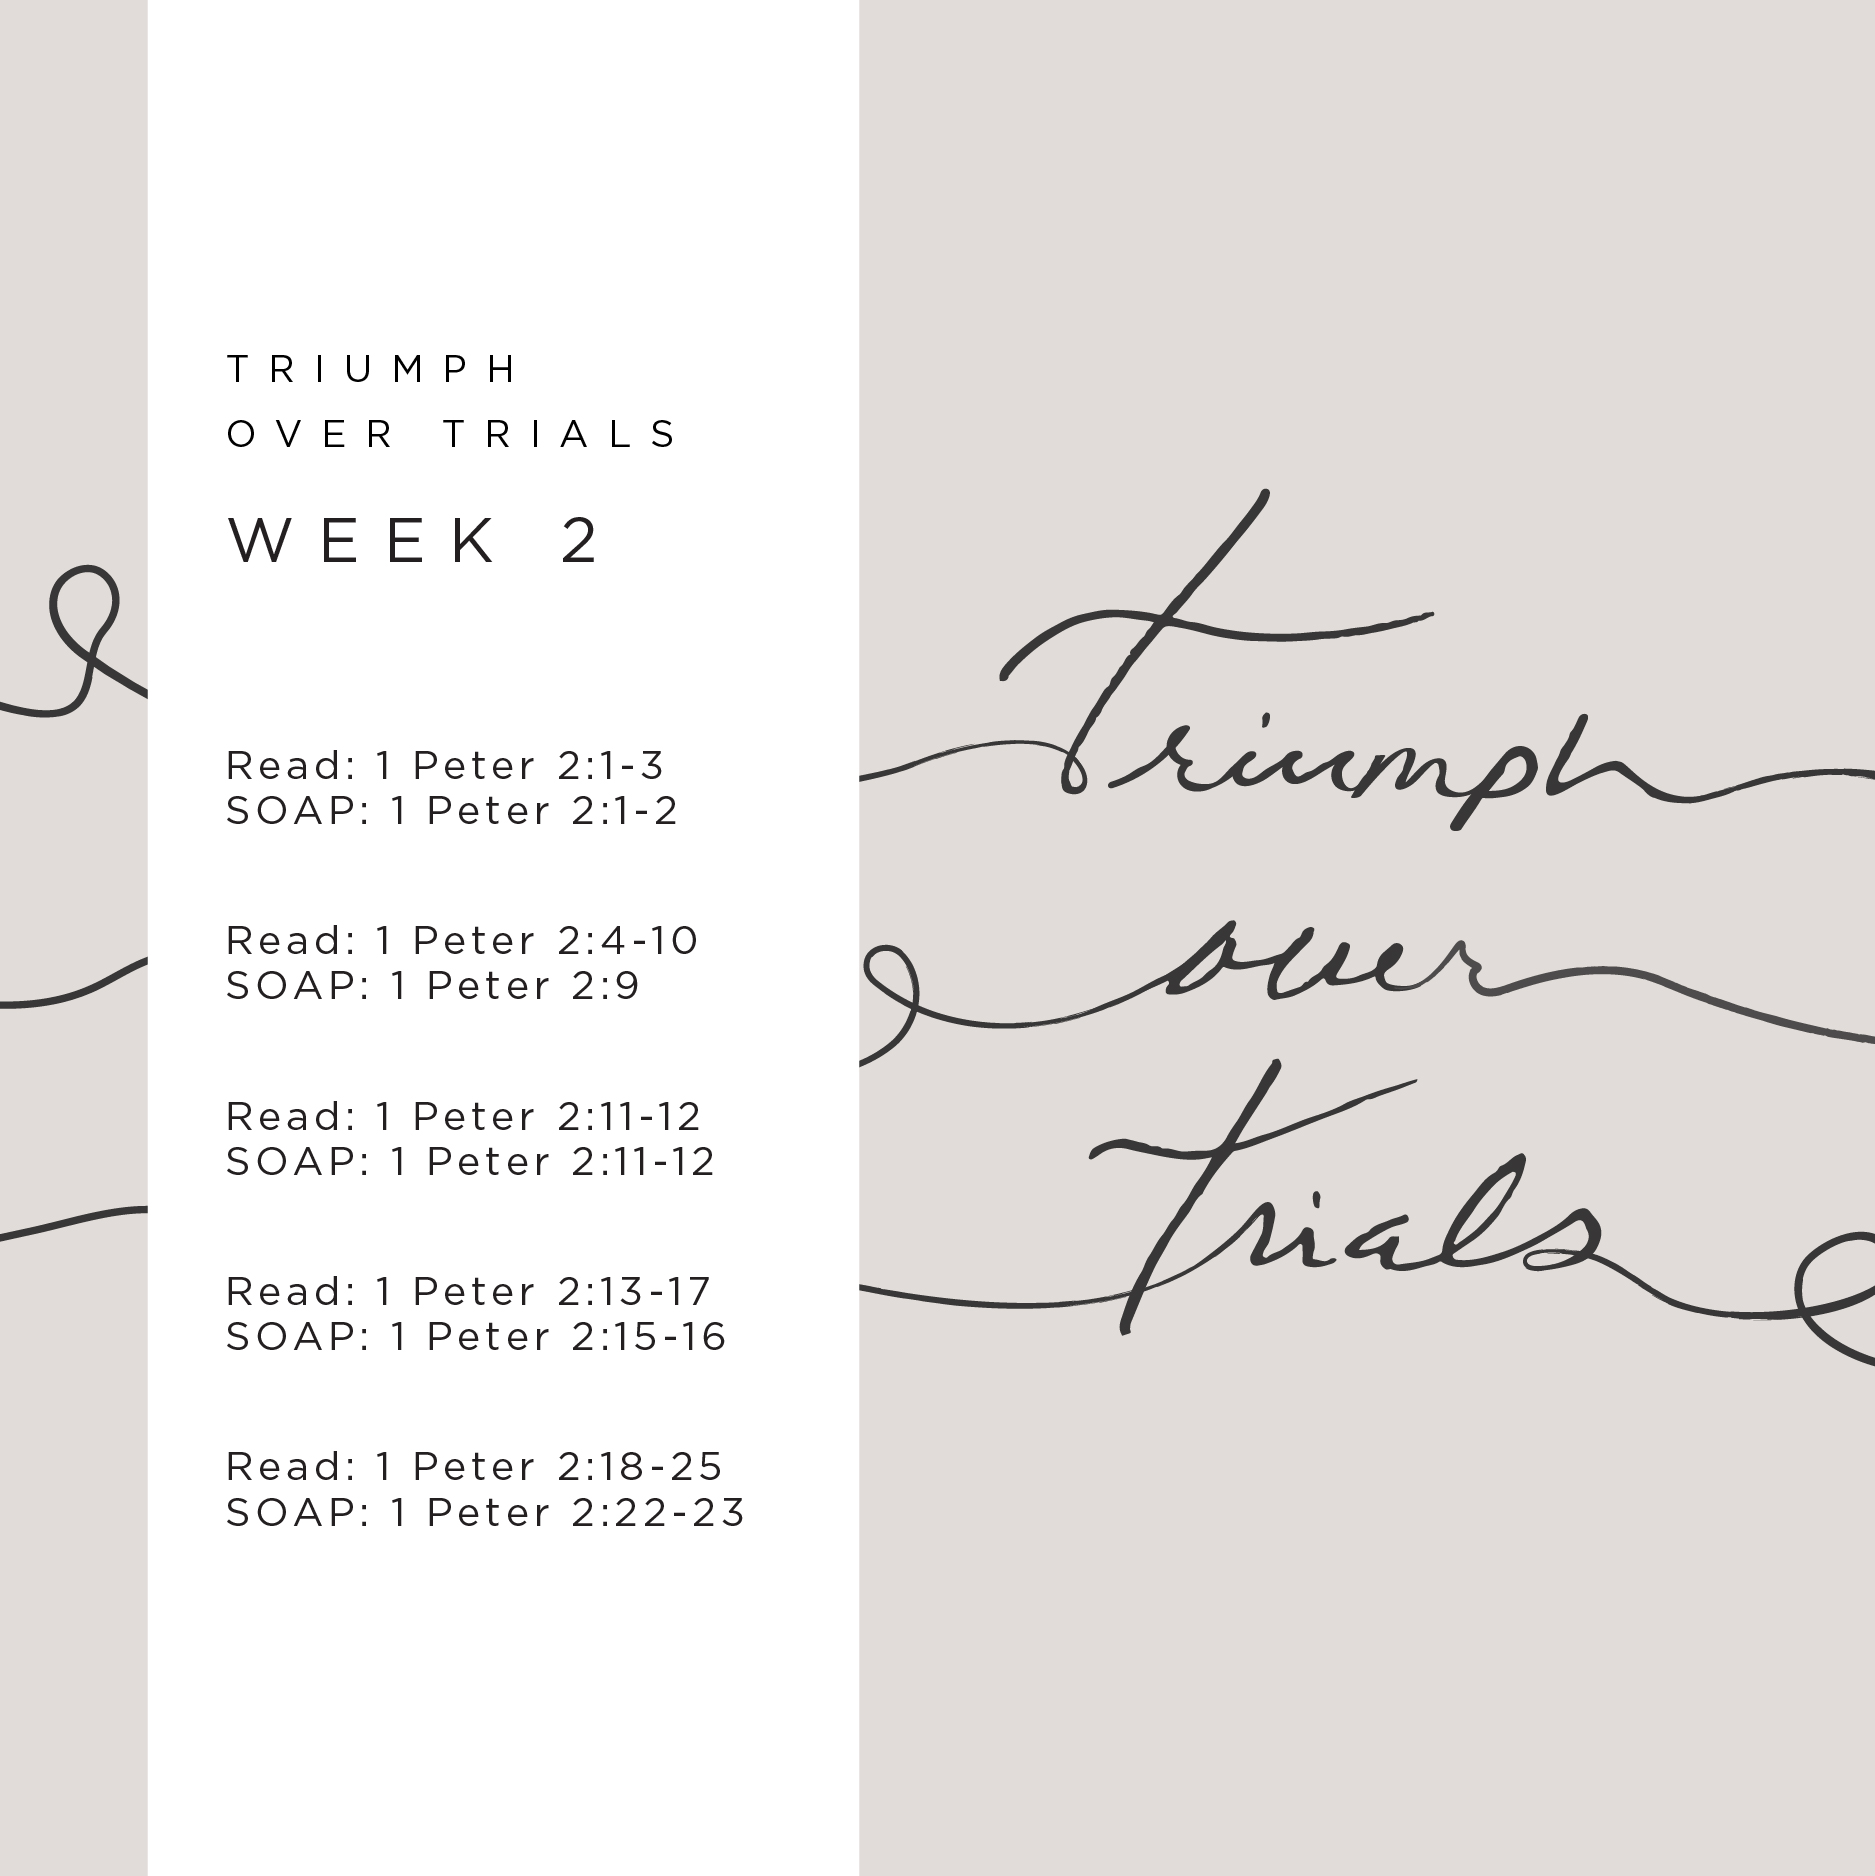 TRIUMPH
OVER TRIALS
WEEK 2
Read: 1 Peter 2:1-3
SOAP: 1 Peter 2:1-2
Read: 1 Peter 2:4-10
SOAP: 1 Peter 2:9
Read: 1 Peter 2:11-12
SOAP: 1 Peter 2:11-12
Read: 1 Peter 2:13-17
SOAP: 1 Peter 2:15-16
Read: 1 Peter 2:18-25
SOAP: 1 Peter 2:22-23
Triumph
over
Trials